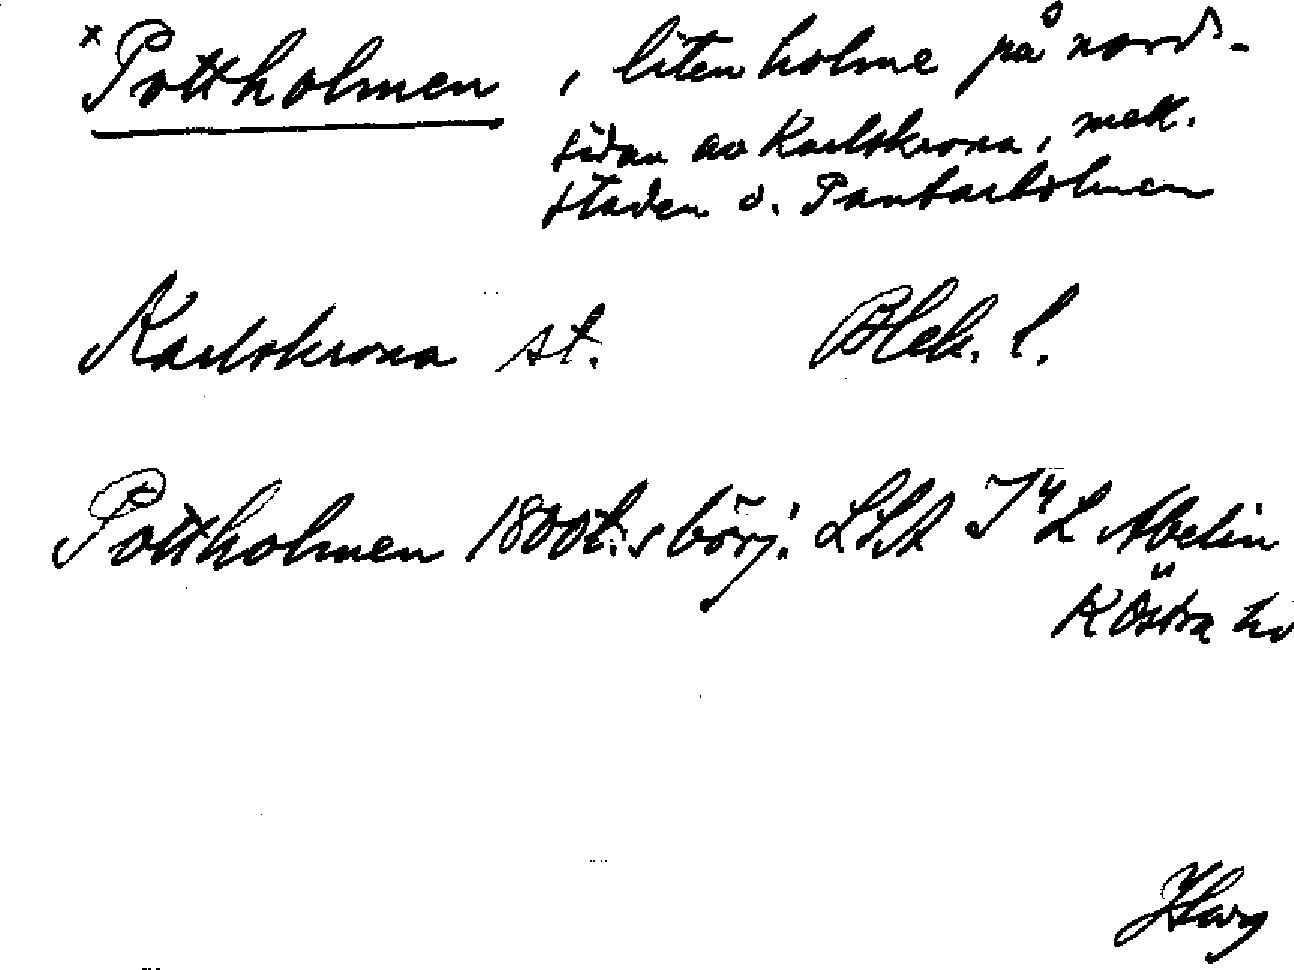 * Pottholmen, liten holme på nord-
sidan av Karlskrona, mell.
staden o. Pantarholmen
Karlskrona st. Blek. l.
Pottholmen 1800t:s börj. LSA Abelin
K Östra